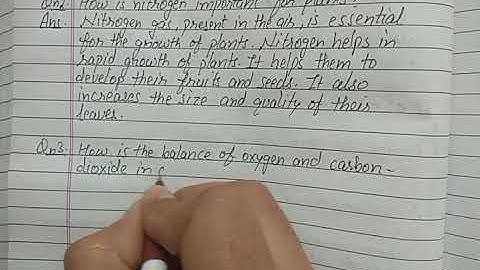 Qn2. How is nitrogen important for plants?
Ans. Nitrogen gas, present in the air, is essential
for the growth of plants. Nitrogen helps in
rapid ghowth of plants. It helps them to
develop their fruits and seeds. It also
increases the size and quality of their
leaves.
Qn3. How is the balance of oxygen and carbon-
dioxide in